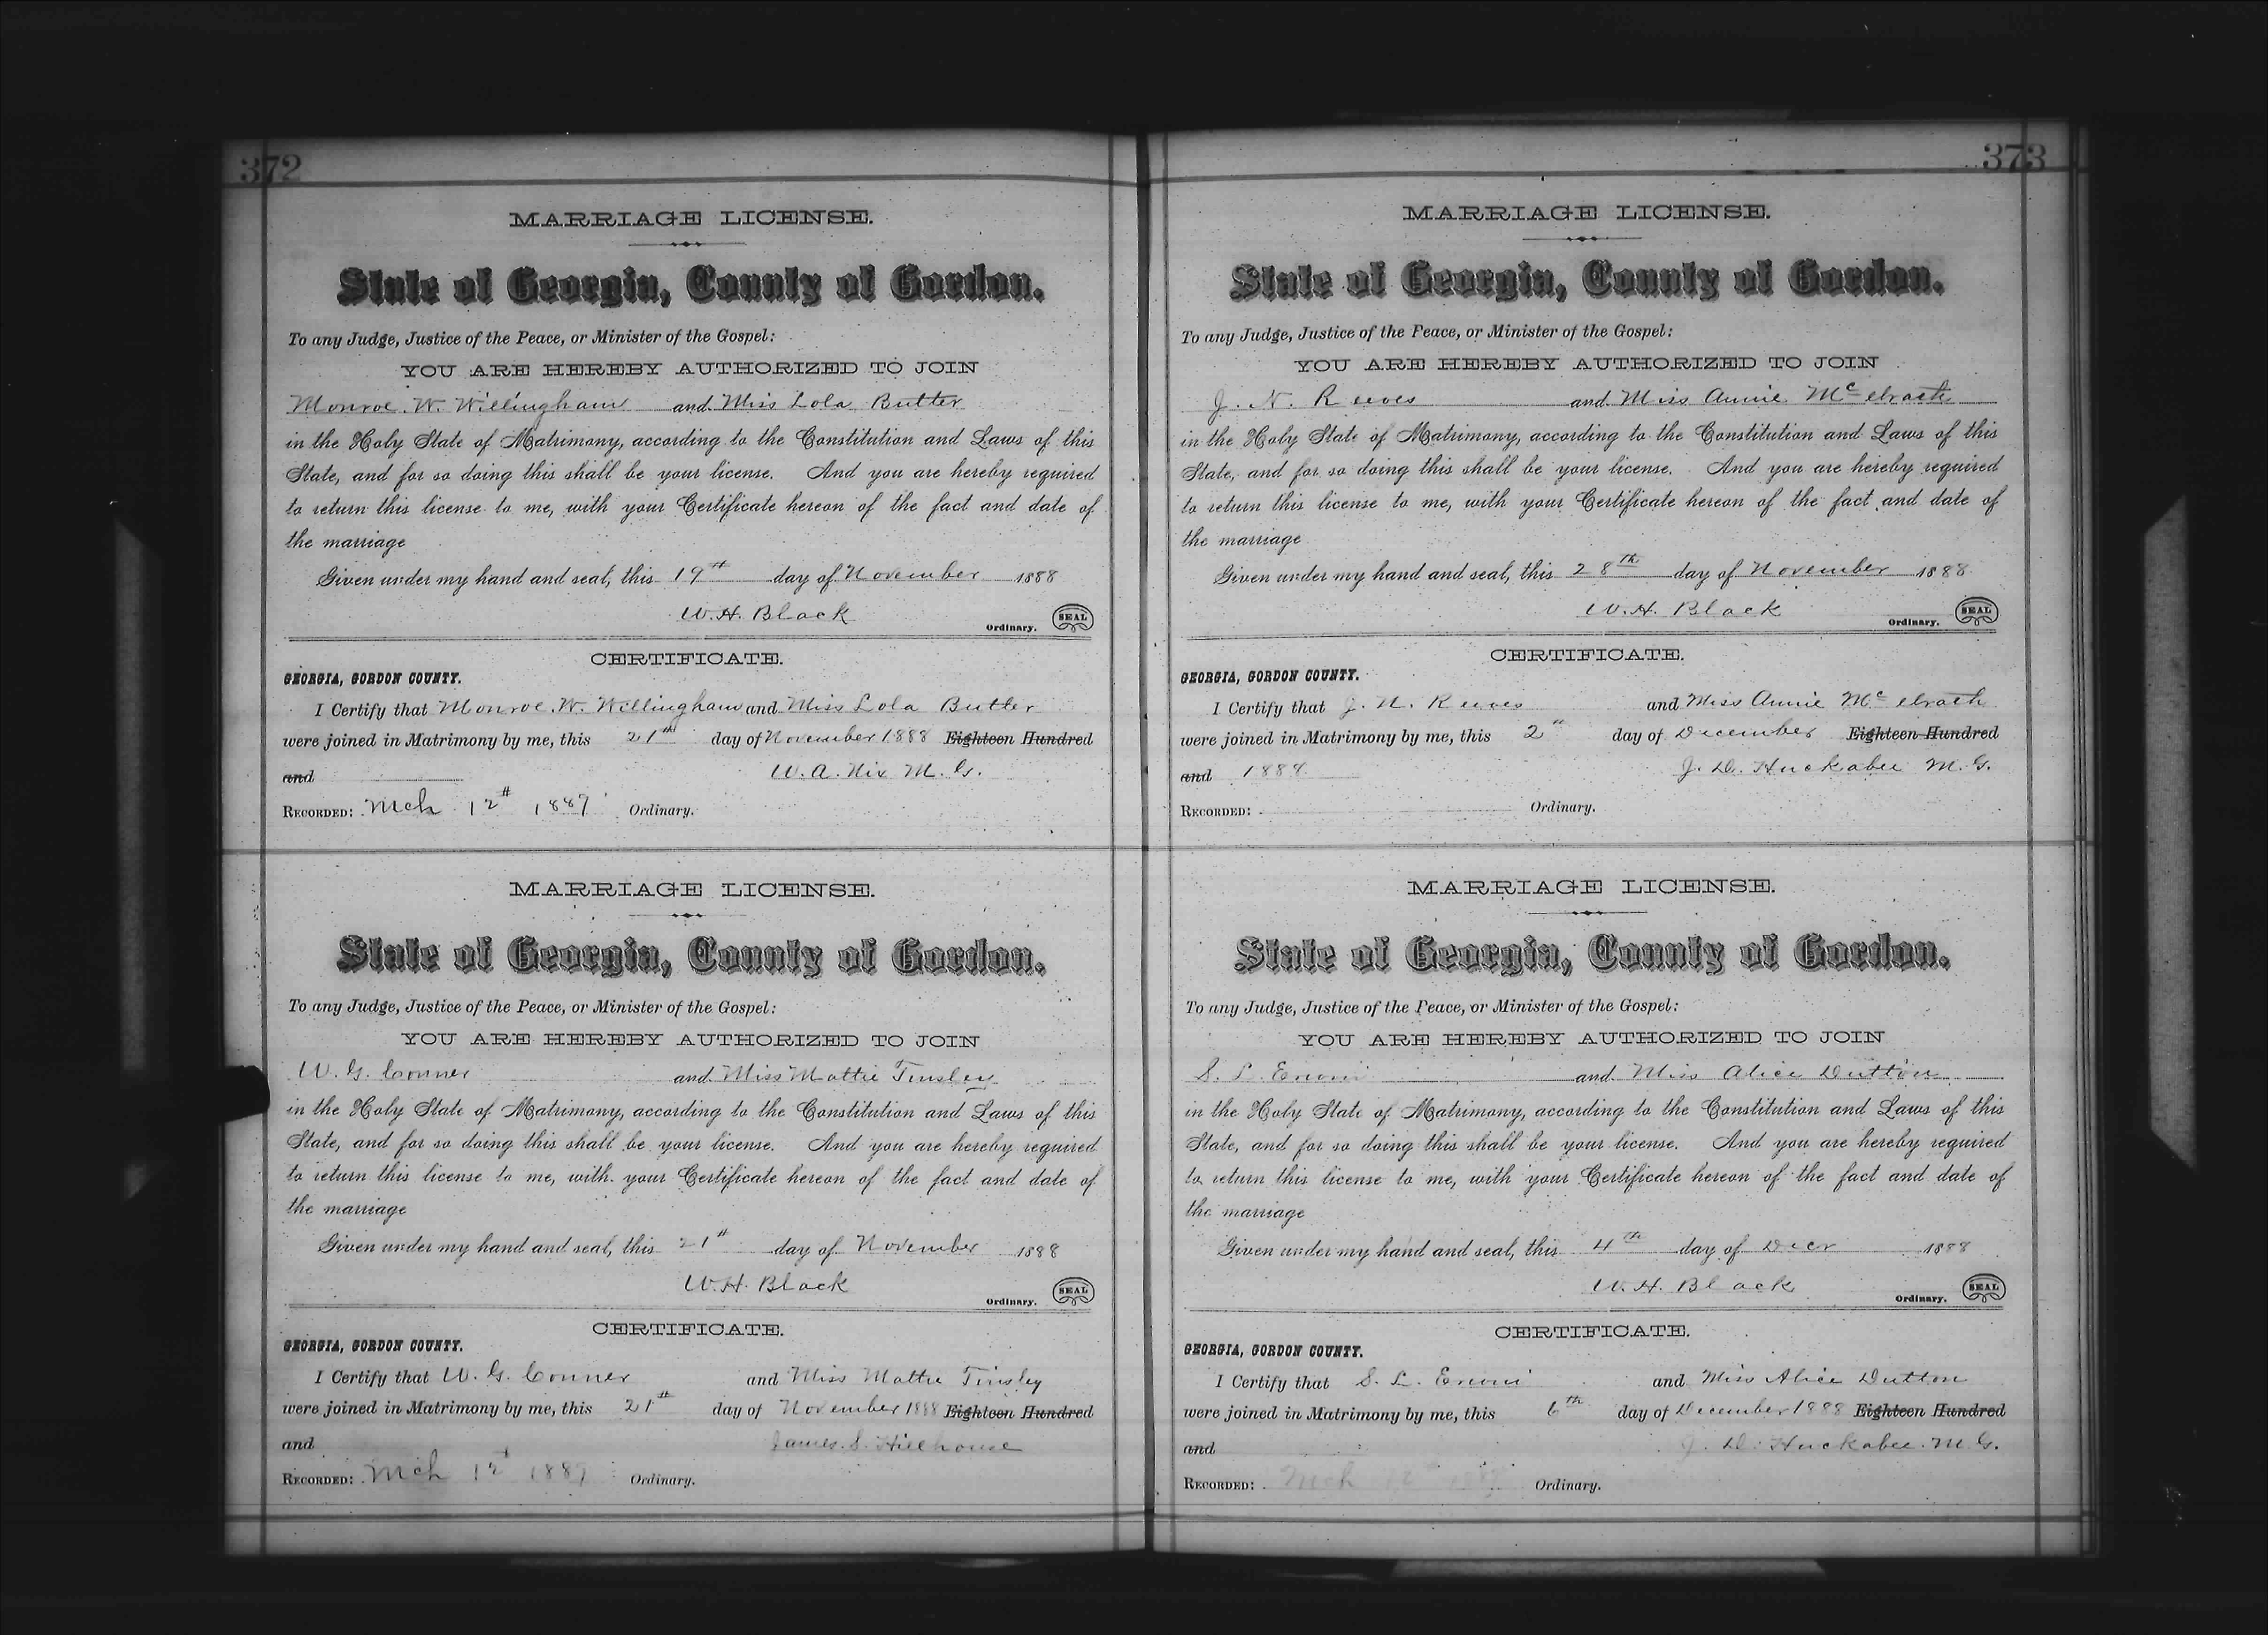 372
MARRIAGE LICENSE.
State of Georgia, County of Gordon.
To any Judge, Justice of the Peace, or Minister of the Gospel:
YOU ARE HEREBY AUTHORIZED TO JOIN
Monroe. W. Willingham and Miss Lola Butler
in the Holy State of Matrimony, according to the Constitution and Laws of this
State, and for so doing this shall be your license. And you are hereby required
to return this license to me, with your Certificate hereon of the fact and date of
the marriage
Given under my hand and seal, this 19th day of November 1888
W. H. Black
Ordinary. SEAL
CERTIFICATE.
GEORGIA, GORDON COUNTY.
I Certify that Monroe. W. Willingham and Miss Lola Butler
were joined in Matrimony by me, this 21th day of November 1888 Eighteen Hundred
and W. A. Nix M. G.
RECORDED: Mch 12th 1889 Ordinary.
MARRIAGE LICENSE.
State of Georgia, County of Gordon.
To any Judge, Justice of the Peace, or Minister of the Gospel:
YOU ARE HEREBY AUTHORIZED TO JOIN
W. G. Conner and Miss Mattie Tinsley
in the Holy State of Matrimony, according to the Constitution and Laws of this
State, and for so doing this shall be your license. And you are hereby required
to return this license to me, with your Certificate hereon of the fact and date of
the marriage
Given under my hand and seal, this 21th day of November 1888
W. H. Black
Ordinary. SEAL
CERTIFICATE.
GEORGIA, GORDON COUNTY.
I Certify that W. G. Conner and Miss Mattie Tinsley
were joined in Matrimony by me, this 21th day of November 1888 Eighteen Hundred
and James. S. Hillhouse
RECORDED: Mch 12th 1889 Ordinary.
373
MARRIAGE LICENSE.
State of Georgia, County of Gordon.
To any Judge, Justice of the Peace, or Minister of the Gospel:
YOU ARE HEREBY AUTHORIZED TO JOIN
J. N. Reeves and Miss Annie McElrath
in the Holy State of Matrimony, according to the Constitution and Laws of this
State, and for so doing this shall be your license. And you are hereby required
to return this license to me, with your Certificate hereon of the fact and date of
the marriage
Given under my hand and seal, this 28th day of November 1888
W. H. Black
Ordinary. SEAL
CERTIFICATE.
GEORGIA, GORDON COUNTY.
I Certify that J. N. Reeves and Miss Annie McElrath
were joined in Matrimony by me, this 2nd day of December Eighteen Hundred
and 1888 J. D. Huckabee M. G.
RECORDED: Ordinary.
MARRIAGE LICENSE.
State of Georgia, County of Gordon.
To any Judge, Justice of the Peace, or Minister of the Gospel:
YOU ARE HEREBY AUTHORIZED TO JOIN
S. L. and Miss Alice Dutton
in the Holy State of Matrimony, according to the Constitution and Laws of this
State, and for so doing this shall be your license. And you are hereby required
to return this license to me, with your Certificate hereon of the fact and date of
the marriage
Given under my hand and seal, this 4th day of Decr 1888
W. H. Black
Ordinary. SEAL
CERTIFICATE.
GEORGIA, GORDON COUNTY.
I Certify that S. L. and Miss Alice Dutton
were joined in Matrimony by me, this 6th day of December 1888 Eighteen Hundred
and J. D. Huckabee. M. G.
RECORDED: Mch 12 Ordinary.